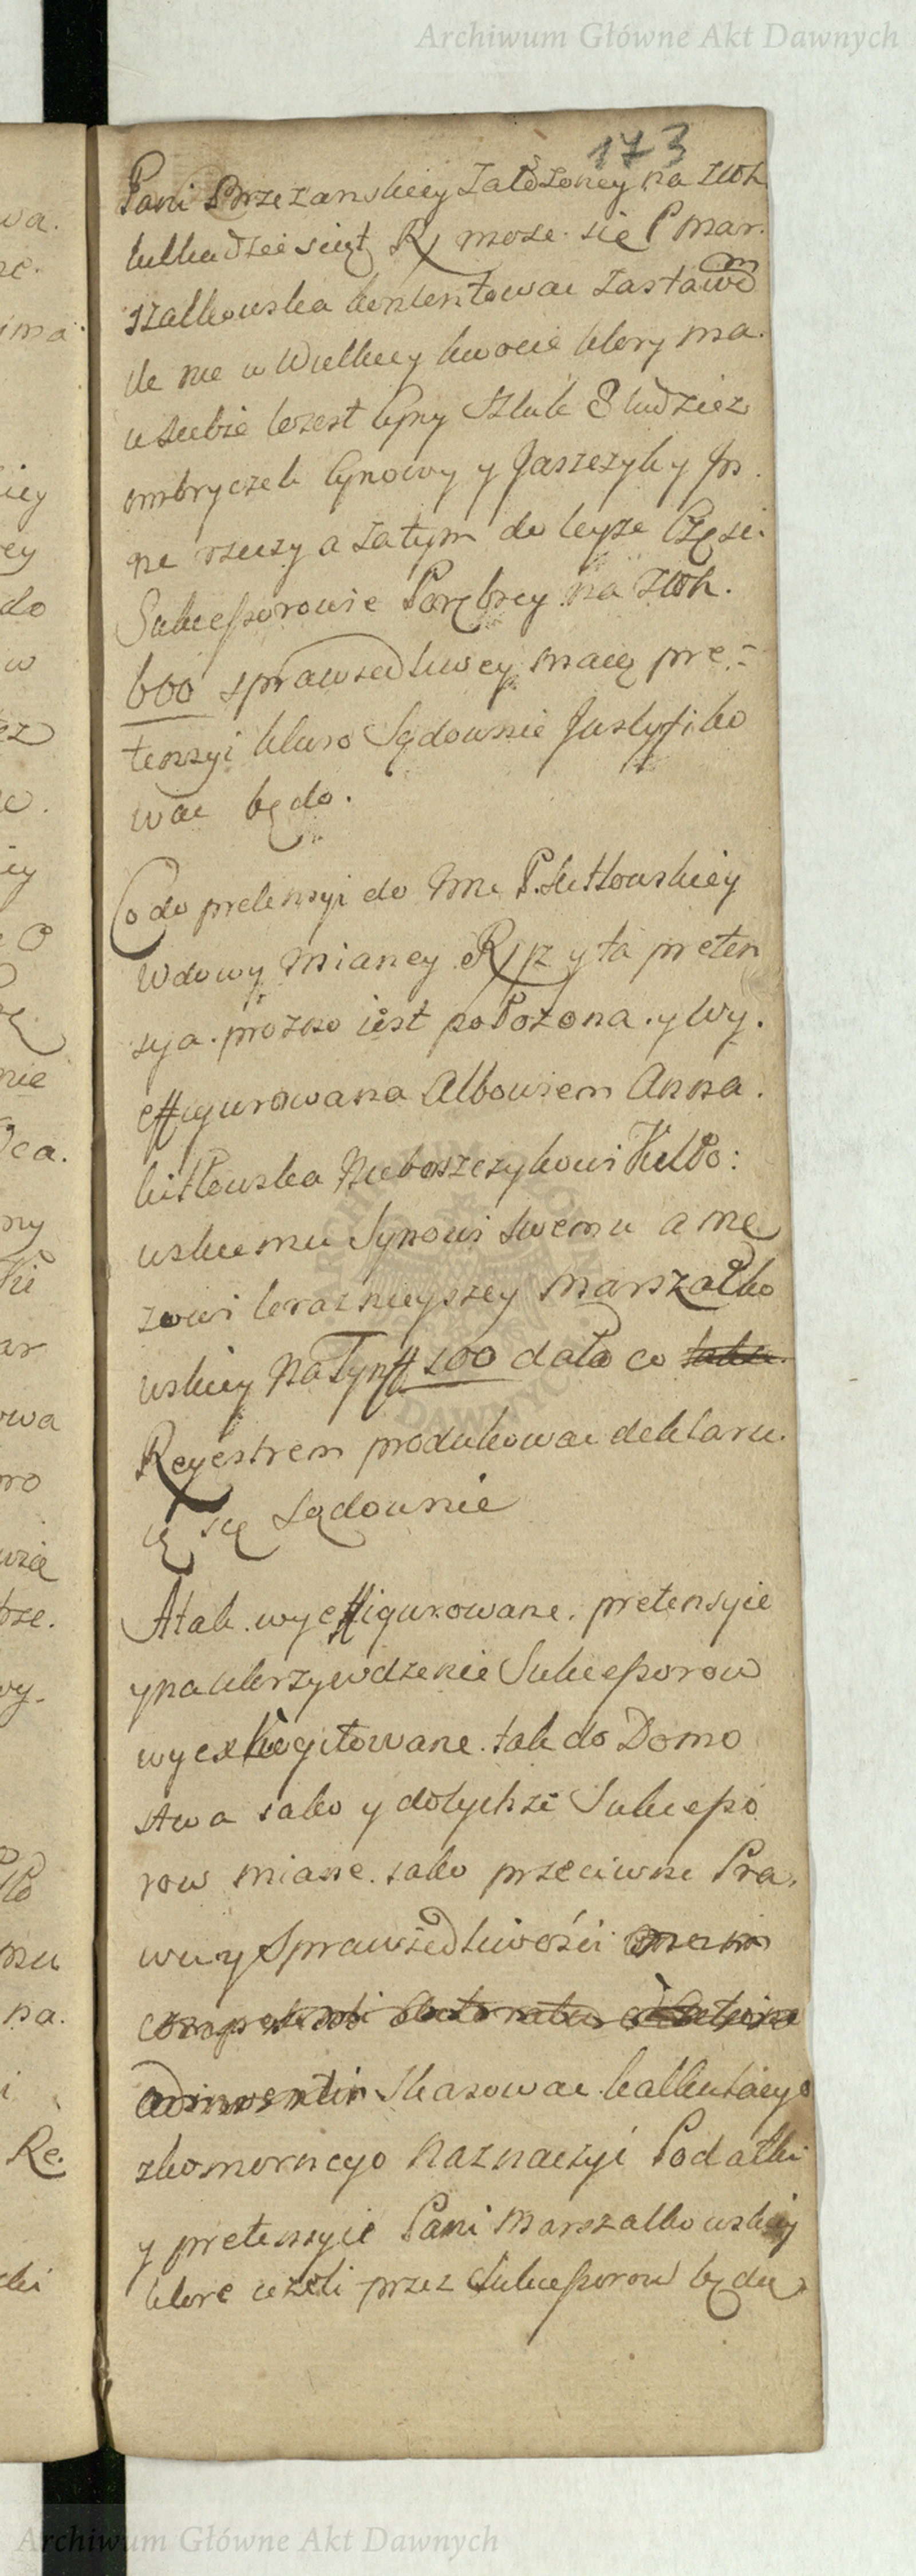 Archiwum Główne Akt Dawnych
173
Pani Brzezanskiey Załozoney na Złoh
kilkadziesiąt Rx może się P Mar.
szalkowska kontentować zastawem
Ile nie w Wielkiey kworie ktory ma.
u siebie iest Cyny Sztuk 8 ludziez
ombryczek Cynowy y Jaszczyk y Jn.
ne rzeczy a zatym do teyze Częsci.
Sukceßorowie Porębscy na Złoh.
600 sprawiedliwey maią pre=
tensyi kturo Sądownie Justyfiko
wać będo.
Co do pretensyi do Jme P. Kittowskiey
Wdowy mianey Rx pz y ta preten
sya. prozno iest połozona. y Wy.
effigurowana Albowiem Anna.
kitłowska Nieboszczykowi Kitło:
wskiemu Synowi swemu a mę
zowi teraznieyszey Marszałko
wskiey na Tynff 100 dała co
Reyestrem produkować deklaru.
ią się Sądownie
A tak. wyeffigurowane. pretensyie
y na Ukrzywdzenie Sukceßorow
wyexkogitowane. tak do Domo
stwa iako y do tychże Sukceßo
row miane. iako przeciwne Pra.
wu y Sprawiedliwości
Skasować kalkulacyo
zkomornego Naznaczyć Podatki
y pretensyie Pani Marszalkowskiey
ktore ieżeli przez Sukceßorow będą
Archiwum Główne Akt Dawnych